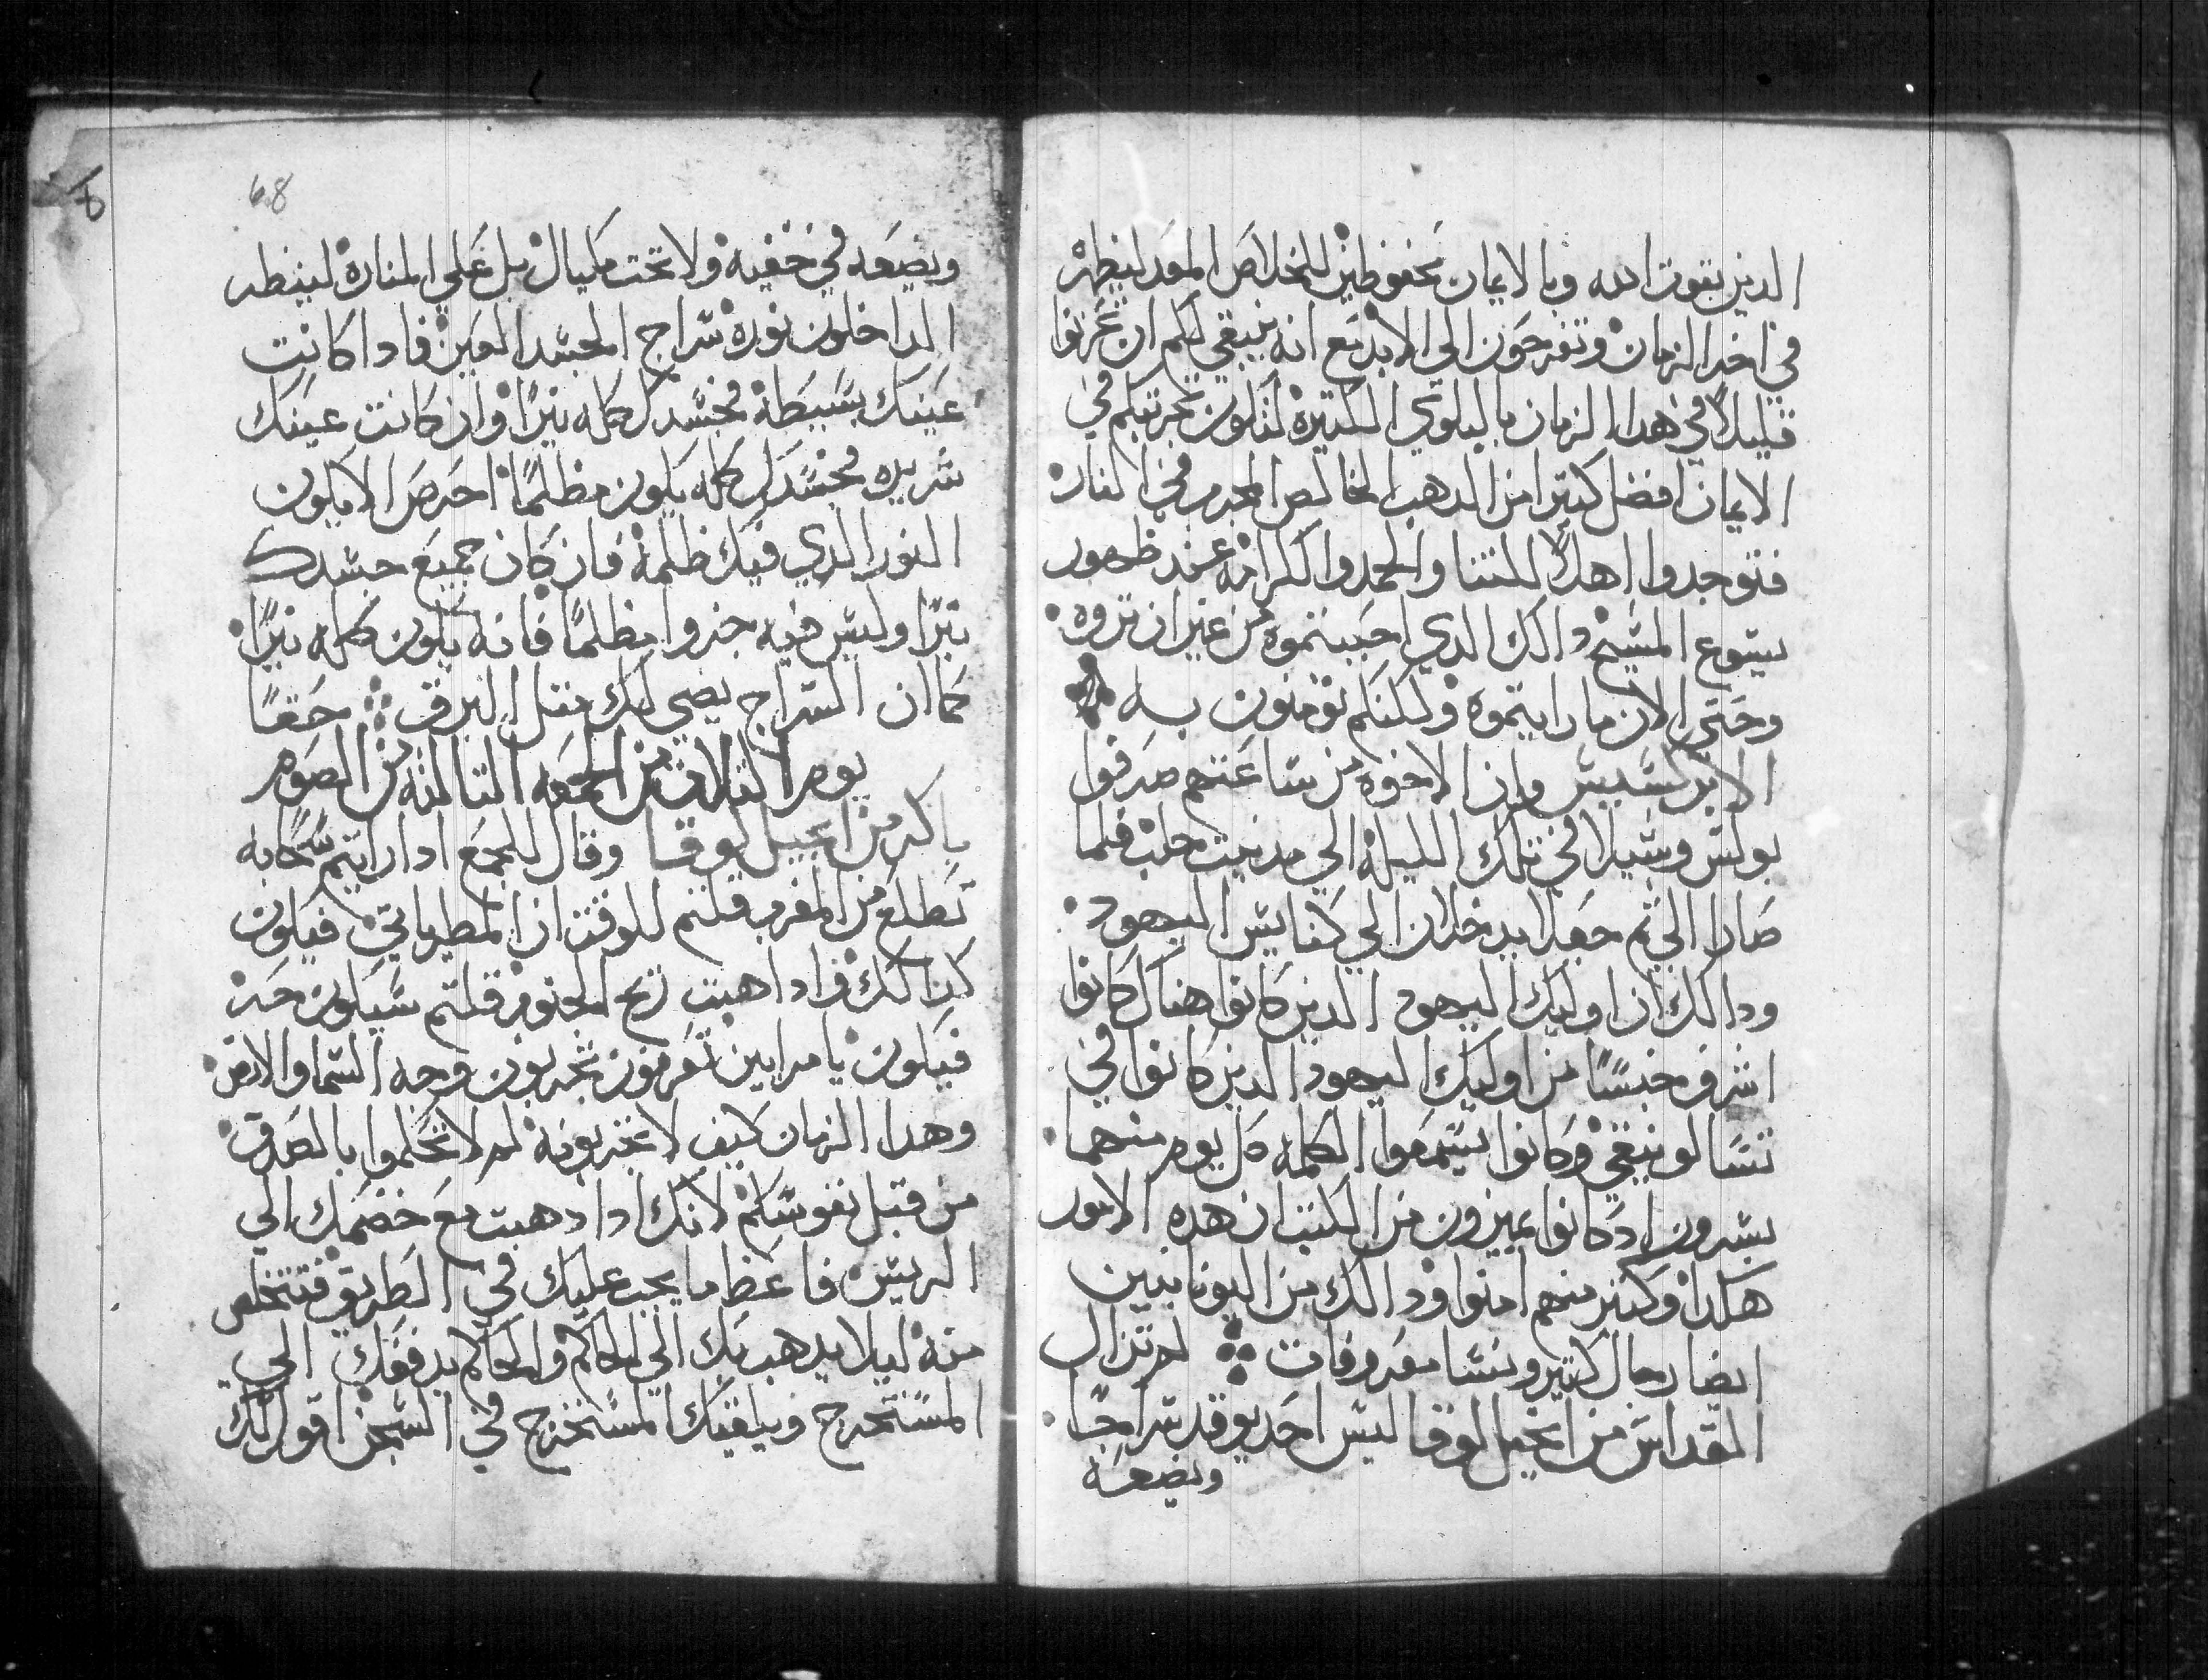 الدين بقوت الله وبالايمان محفوظين للخلاص المعد ليظهر
في اخر الزمان وتفرحون الي الابد مع انه ينبغي لكم ان تحزنوا
قليلاً في هدا الزمان بالبلوي الكتيره لتكون تجربتكم في
الايمان افضل كتيرا من الدهب الخالص المجرب في النار
فتوجدوا اهلاً للتنا والحمد والكرامه عند ظهور
يسوع المسيح دالك الدي احببتموه من غير ان تروه
وحتي الان ما رايتموه ولكنكم تومنون به
الابركسيس وان الاخوه من ساعتهم صرفوا
بولس وسيلا في تلك الليله الي مدينت حلب فلما
صارا الي تم جعلا يدخلان الي كنايس اليهود
ودالك ان اوليك اليهود الدين كانوا هناك كانوا
اشرف جنسًا من اوليك اليهود الدين كانوا في
تسالونيقي وكانوا يستمعوا الكلمه كل يوم منهما
بسرور اد كانوا يميزون من الكتب ان هده الامور
هكدا وكتير منهم امنوا ودالك من اليونانيين
ايضا رجال كتير ونسا معروفات لم تزال
القداس من انجيل لوقا ليس احد يوقد سراجًا
ويضعه
68
ويضعه في خفيه ولا تحت مكيال بل علي المناره لينظر
الداخلون نوره سراج الجسد العين فادا كانت
عينك بسيطه فجسدك كله نيرًا وان كانت عينك
شريره فجسدك كله يكون مظلمًا احرص الا يكون
النور الدي فيك ظلمه فان كان جميع جسدك
نيرًا وليس فيه جزوا مظلمًا فانه يكون كله نيرًا
كما ان السراج يضي لك متل البرق حقًا
يوم التلات من الجمعه التالته من الصوم
باكر من انجيل لوقا وقال للجمع ادا رايتم سحابه
تطلع من المغرب قلتم للوقت ان المطر ياتي فيكون
كدالك وادا هبت ريح الجنوب قلتم سيكون حر
فيكون يا مرايين تعرفون تجربون وجه السما والارض
وهدا الزمان كيف لا تجربونه لم لا تحكموا بالصدق
من قبل نفوسكم لانك ادا دهبت مع خصمك الي
الريس فاعط ما يجب عليك في الطريق فتتخلص
منه ليلا يدهب بك الي الحاكم والحاكم يدفعك الي
المستخرج ويلقيك المستخرج في السجن اقول لك